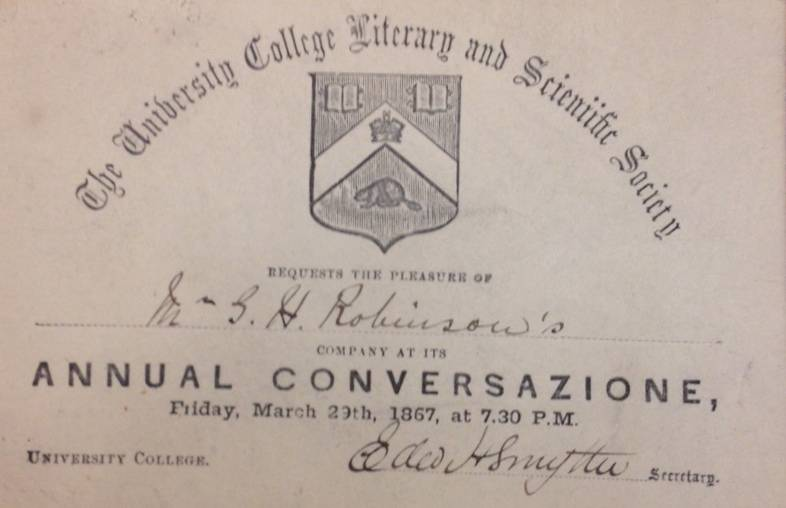 The University College Literary and Scientific Society
REQUESTS THE PLEASURE OF
Mr G. H. Robinson's
COMPANY AT ITS
ANNUAL CONVERSAZIONE,
Friday, March 29th, 1867, at 7.30 P.M.
UNIVERSITY COLLEGE.
Edwd H Smythe Secretary.